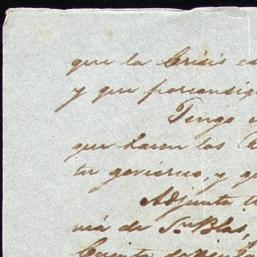 que la Crisis es
y que porconsig
Tengo
que hacen los
tu govierno, y q
Adjunta t
via de Sn. Blas,
Cuenta